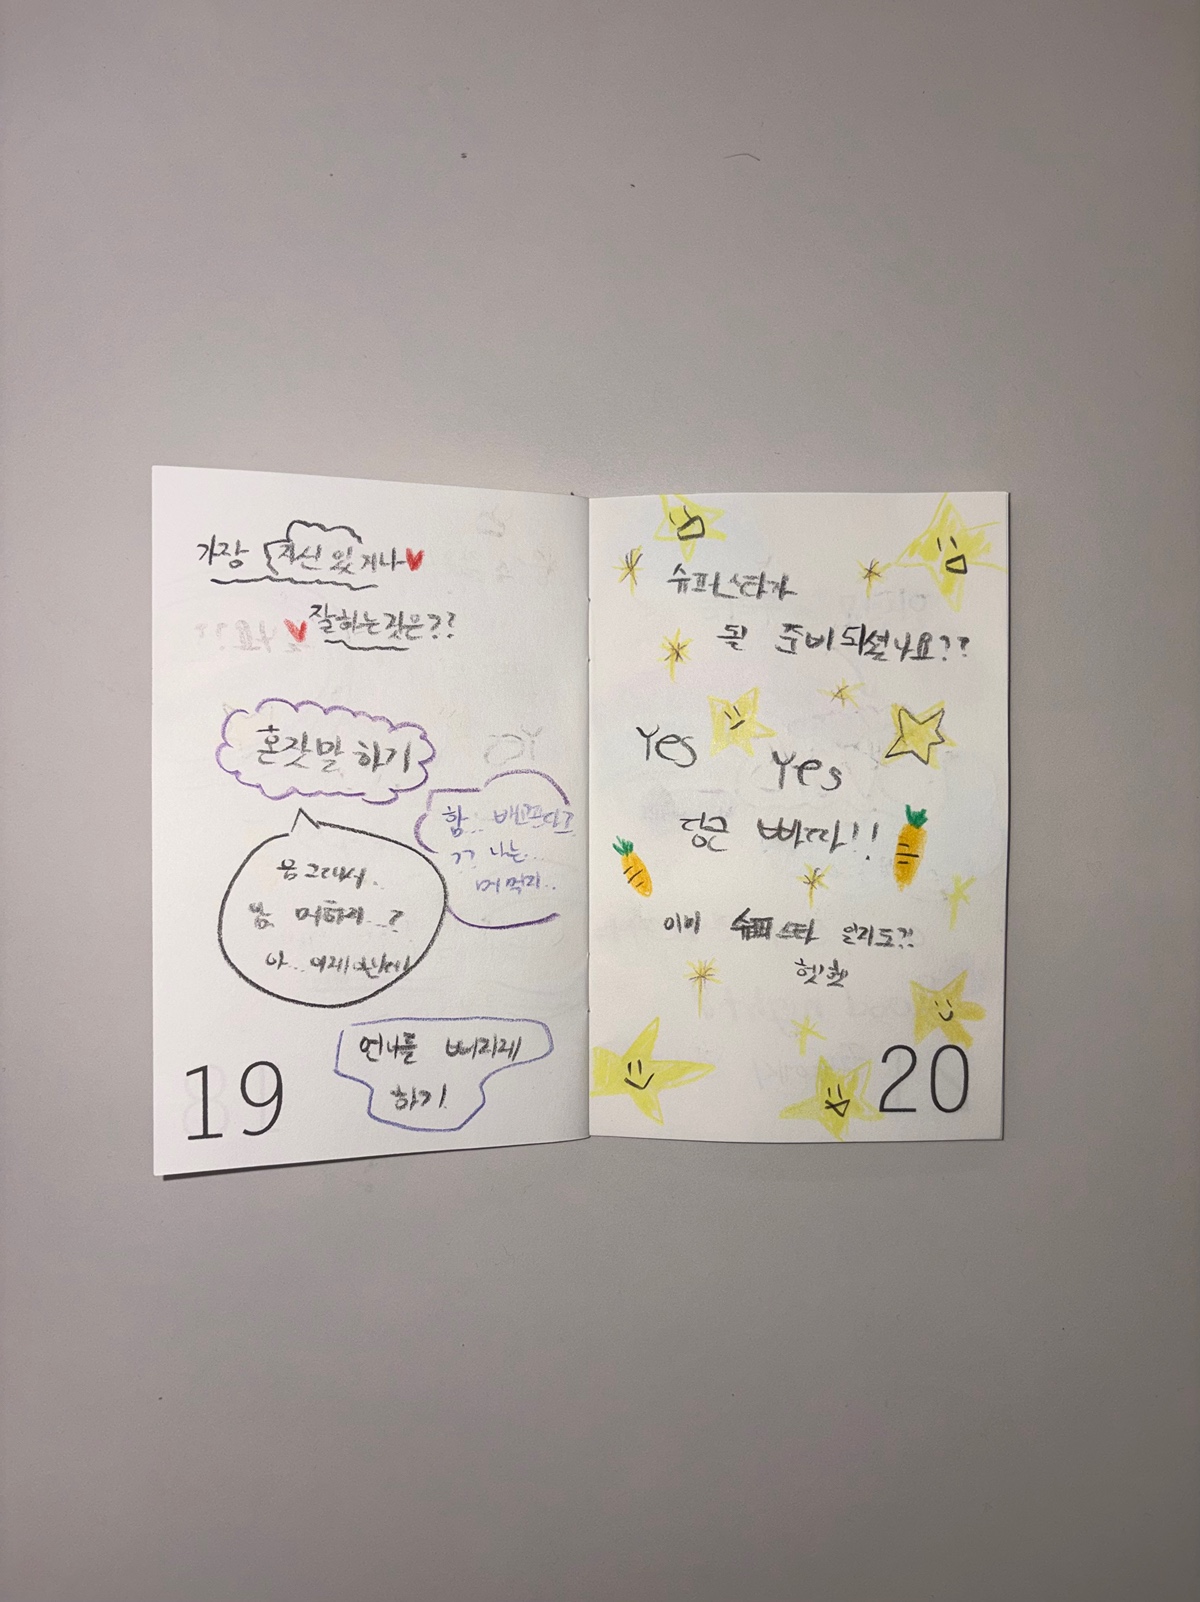 가장 자신 있거나
잘하는것은??
혼잣말 하기
음 그래서..
머하지...?
아...
함... 배고프다고
나는...
머 먹지..
언니를 삐지게
하기
19
슈퍼스타가
될 준비 되셨나요??
Yes
Yes
당근 빠따!!
이미 슈퍼스타 일지도?!
헷헷
20